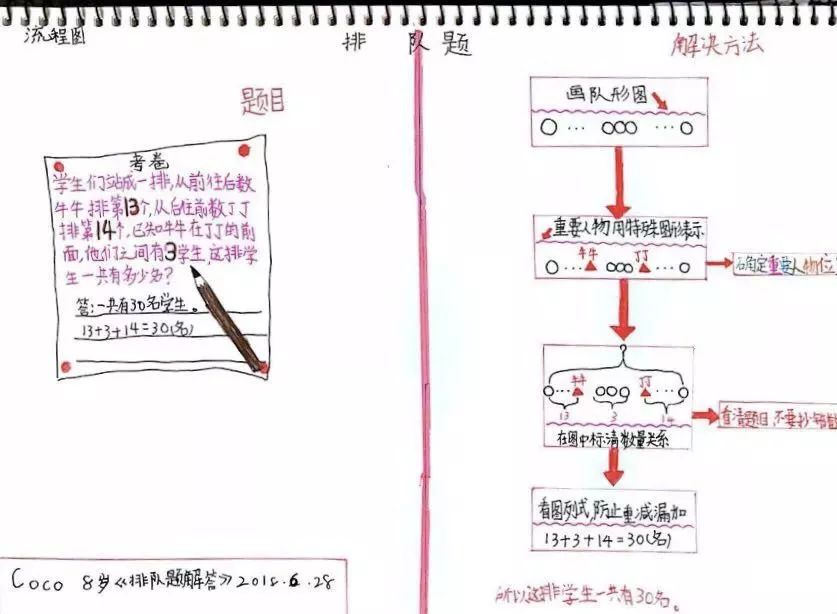 流程图
排 队 题
解决方法
题目
考卷
学生们站成一排,从前往后数
牛牛排第13个,从后往前数丁丁
排第14个,已知牛牛在丁丁的前
面,他们之间有3学生,这排学
生一共有多少名?
答:一共有30名学生。
13+3+14=30(名)
画队形图
重要人物用特殊图形表示
牛牛 丁丁
确定重要人物位
?
牛牛 丁丁
13 3 14
在图中标清数量关系
看清题目,不要抄错
看图列式,防止重减漏加
13+3+14=30(名)
所以这排学生一共有30名。
Coco 8岁《排队题解答》2018.6.28